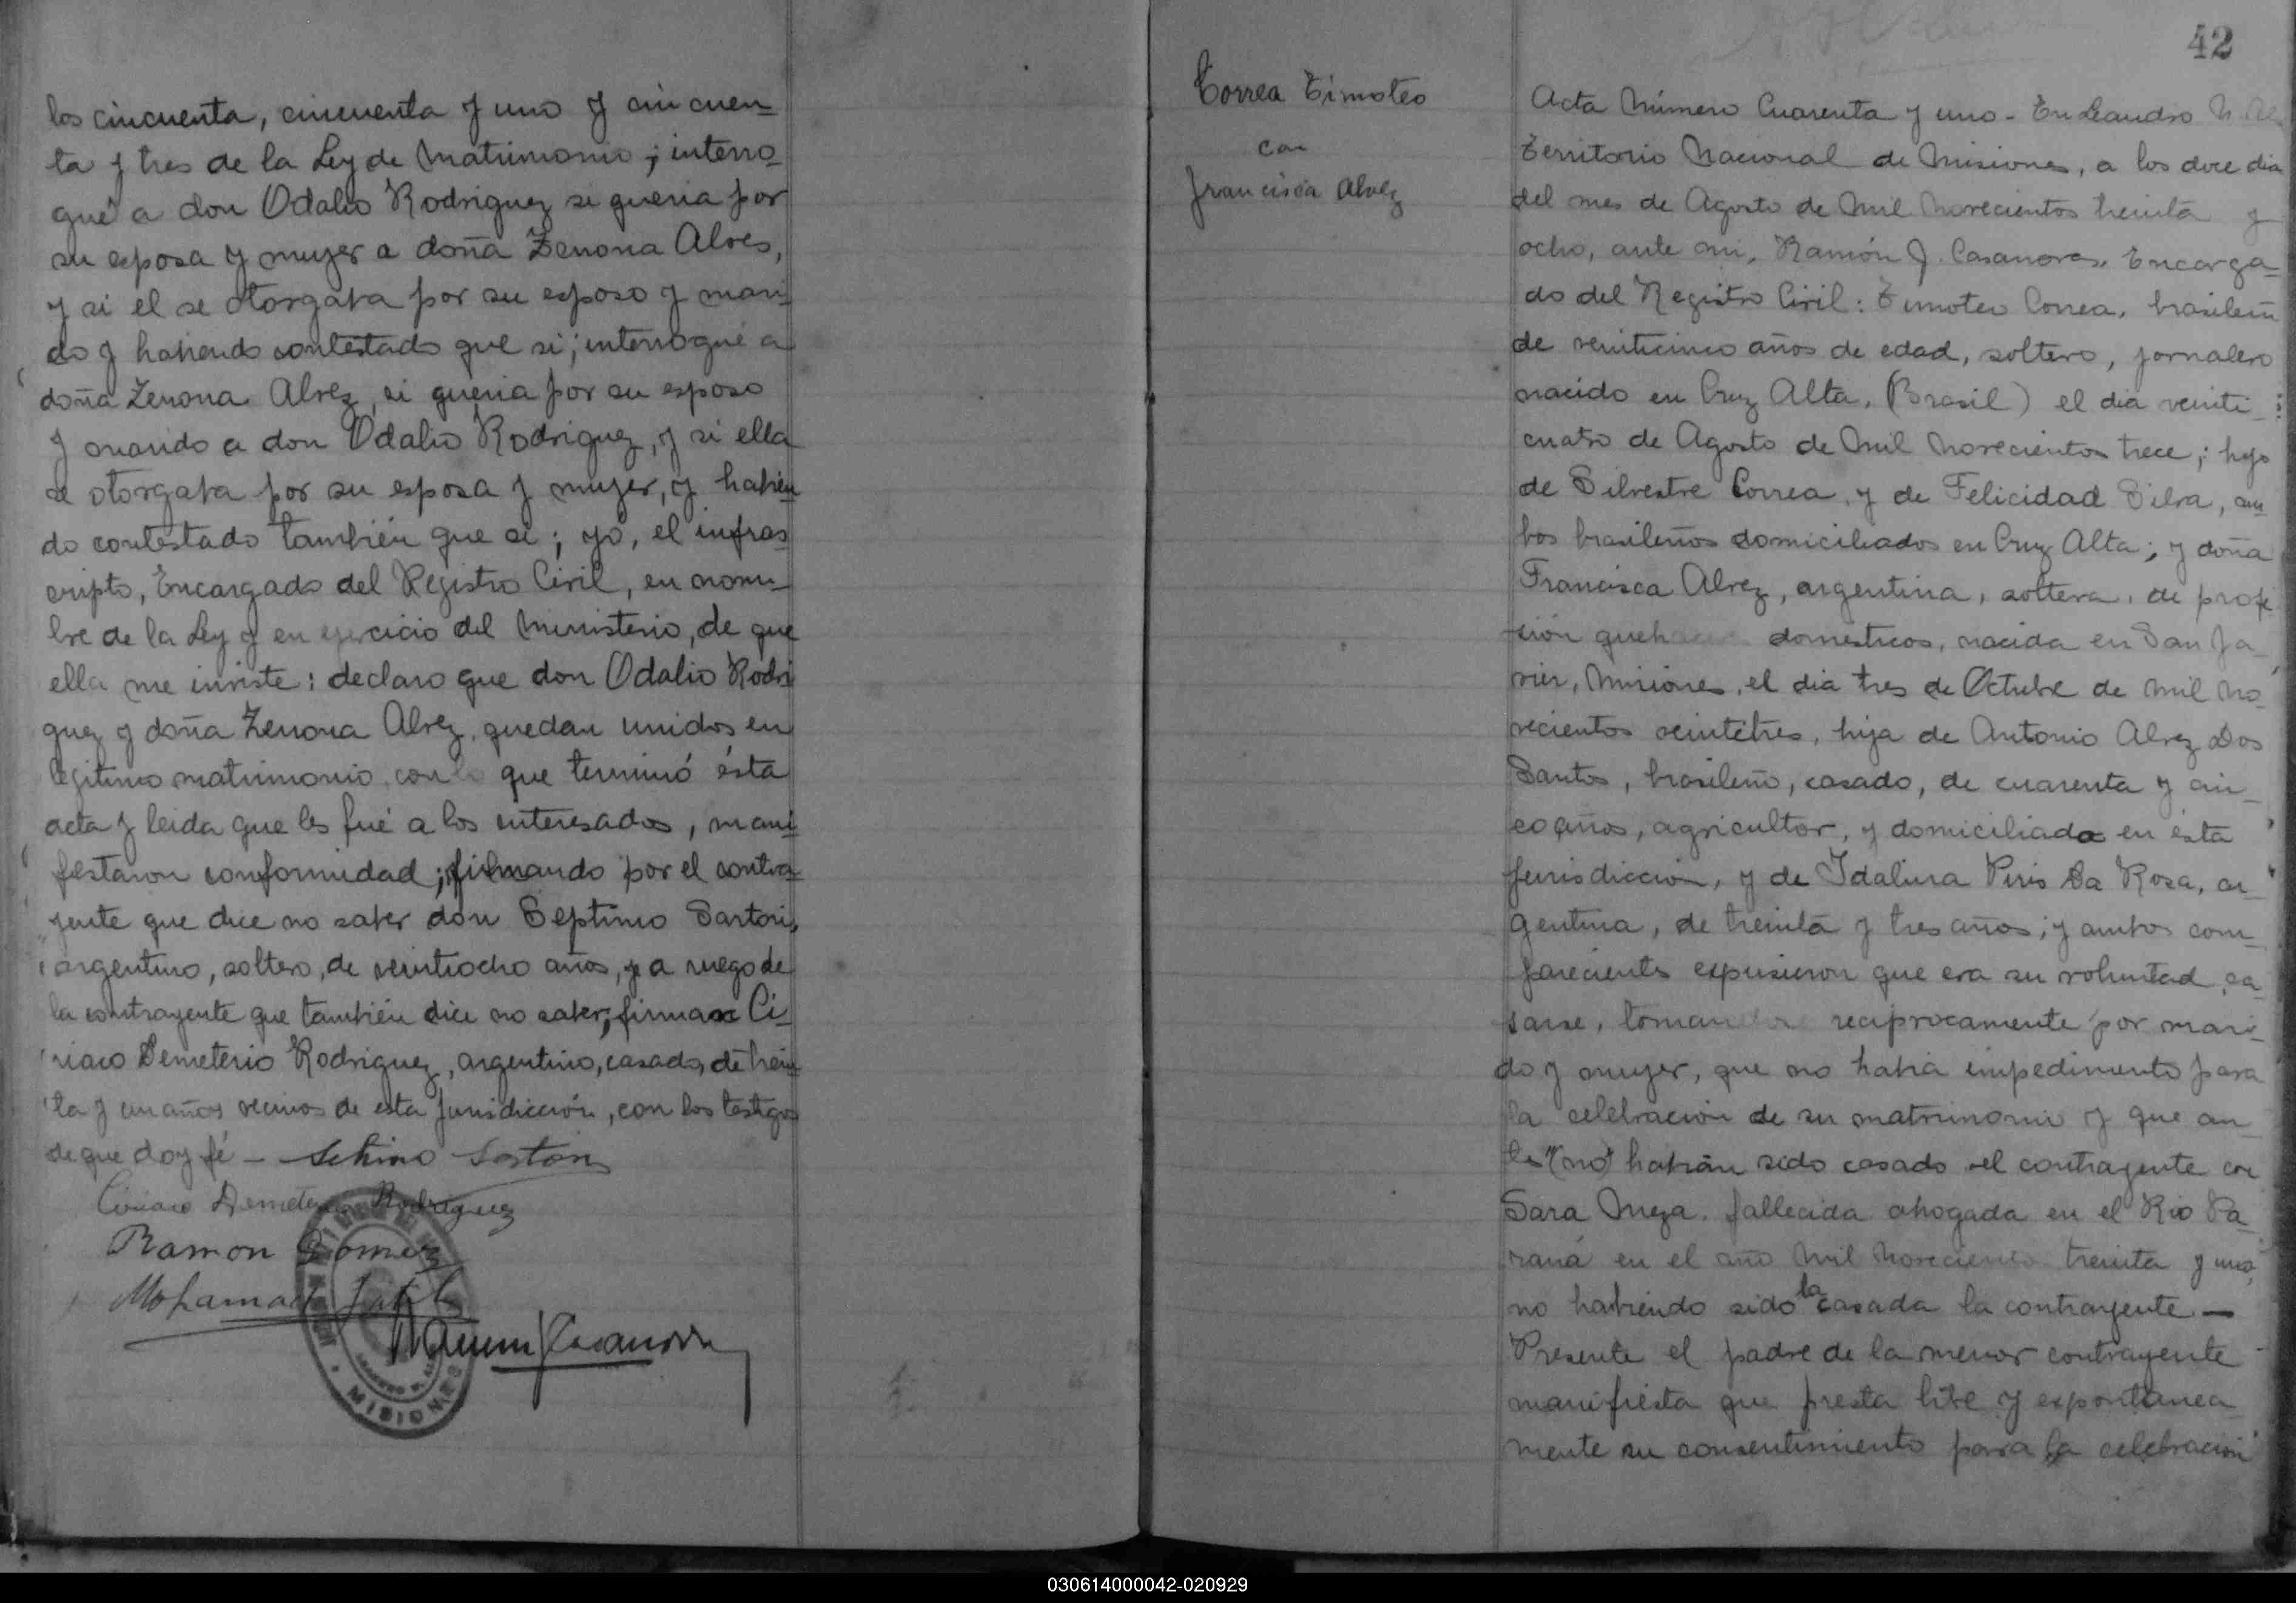 los cincuenta, cincuenta y uno y cincuen-
ta y tres de la Ley de Matrimonio; interro-
gué a don Odalio Rodriguez si queria por
su esposa y mujer a doña Zenona Alves,
y si el se otorgaba por su esposo y mari-
do y habiendo contestado que si; interrogué a
doña Zenona Alvez, si queria por su esposo
y marido a don Odalio Rodriguez, y si ella
se otorgaba por su esposa y mujer, y habien-
do contestado también que si; yo, el infras-
cripto, Encargado del Registro Civil, en nom-
bre de la Ley y en ejercicio del Ministerio, de que
ella me inviste: declaro que don Odalio Rodri-
guez y doña Zenona Alvez, quedan unidos en
legitimo matrimonio, con lo que terminó ésta
acta y leida que les fué a los interesados, mani-
festaron conformidad; firmando por el contra-
yente que dice no saber don Septimo Sartori,
argentino, soltero, de veintiocho años, y a ruego de
la contrayente que también dice no saber, firma Ci-
riaco Demeterio Rodriguez, argentino, casado, de trein-
ta y un años vecinos de esta jurisdicción, con los testigos
de que doy fé -
Ciriaco Demeterio Rodriguez
Ramon Gomez
Mohamad
MISIONES
42
Correa Timoteo
con
Francisca Alvez
Acta Número Cuarenta y uno - En Leandro N. Al
Territorio Nacional de Misiones, a los doce dia
del mes de Agosto de Mil Novecientos treinta y
ocho, ante mi, Ramón J. Casanova, Encarga-
do del Registro Civil: Timoteo Correa, brasileñ
de veinticinco años de edad, soltero, jornalero
nacido en Cruz Alta, (Brasil) el dia veinti-
cuatro de Agosto de Mil Novecientos trece; hijo
de Silvestre Correa y de Felicidad Silva, am-
bos brasileños domiciliados en Cruz Alta; y doña
Francisca Alvez, argentina, soltera, de profe-
sión quehaceres domesticos, nacida en San Ja-
vier, Misiones, el dia tres de Octubre de Mil No-
vecientos veintetres, hija de Antonio Alvez Dos
Santos, brasileño, casado, de cuarenta y cin-
co años, agricultor, y domiciliado en ésta
jurisdicción, y de Idalina Piris Da Rosa, ar-
gentina, de treinta y tres años; y ambos com-
parecientes expusieron que era su voluntad, ca-
sarse, tomandose reciprocamente por mari-
do y mujer, que no habia impedimento para
la celebración de su matrimonio y que an-
tes (no) habian sido casado el contrayente con
Sara Meza, fallecida ahogada en el Rio Pa-
raná en el año Mil Novecientos treinta y uno,
no habiendo sido la casada la contrayente -
Presente el padre de la menor contrayente
manifiesta que presta libre y espontanea-
mente su consentimiento para la celebración
030614000042-020929